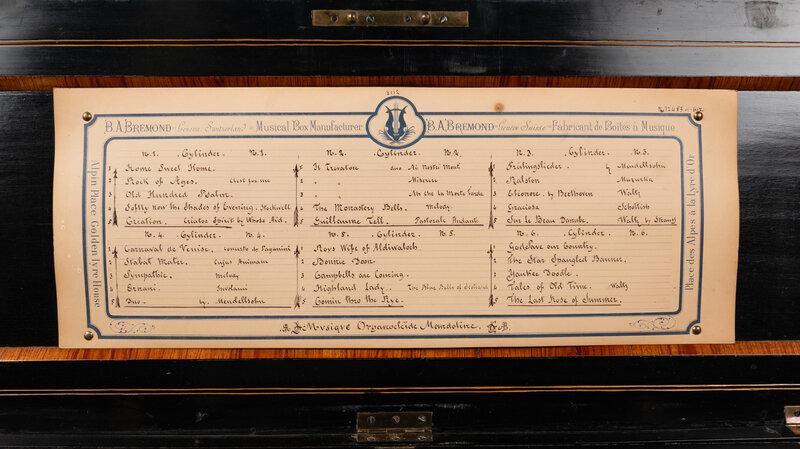 3112
B.A. BREMOND Geneva Switzerland Musical Box Manufacturer
B.A. BREMOND Genève Suisse Fabricant de Boîtes à Musique
Alpin Place Golden lyre House
No. 1. Cylinder. No. 1.
1 Home Sweet Home.
2 Rock of Ages. Cleft for me
3 Old Hundred Psalm.
4 Softly now the Shades of Evening. Stockwell
5 Creation. Creator Spirit by Whose Aid.
No. 2. Cylinder. No. 2.
1 Il Trovatore duo Ai Nostri Monti
2 " " Miserere
3 " " Ah che la Morte
4 The Monastery Bells. Melody.
5 Guillaume Tell. Pastorale Andante
No. 3. Cylinder. No. 3.
1 Frühlingslieder. by Mendelssohn
2 Ralston Mazurka
3 Eleonore. by Beethoven Waltz
4 Graciosa Schottish
5 Sur le Beau Danube. Waltz by Strauss
No. 4. Cylinder. No. 4.
1 Carnaval de Venise. Paganini
2 Stabat Mater. Cujus Animam
3 Sympathie. Melody
4 Ernani. Involami
5 Duo. by Mendelssohn
No. 5. Cylinder. No. 5.
1 Roys Wife of Aldiwaloch
2 Bonnie Doon.
3 Campbells are Coming.
4 Highland Lady. The Blue Bells of Scotland
5 Comin thro the Rye.
No. 6. Cylinder. No. 6.
1 God save our Country.
2 The Star Spangled Banner.
3 Yankee Doodle.
4 Tales of Old Time. Waltz
5 The Last Rose of Summer.
Place des Alpes à la Lyre d'Or
Musique Organocleide Mandoline.